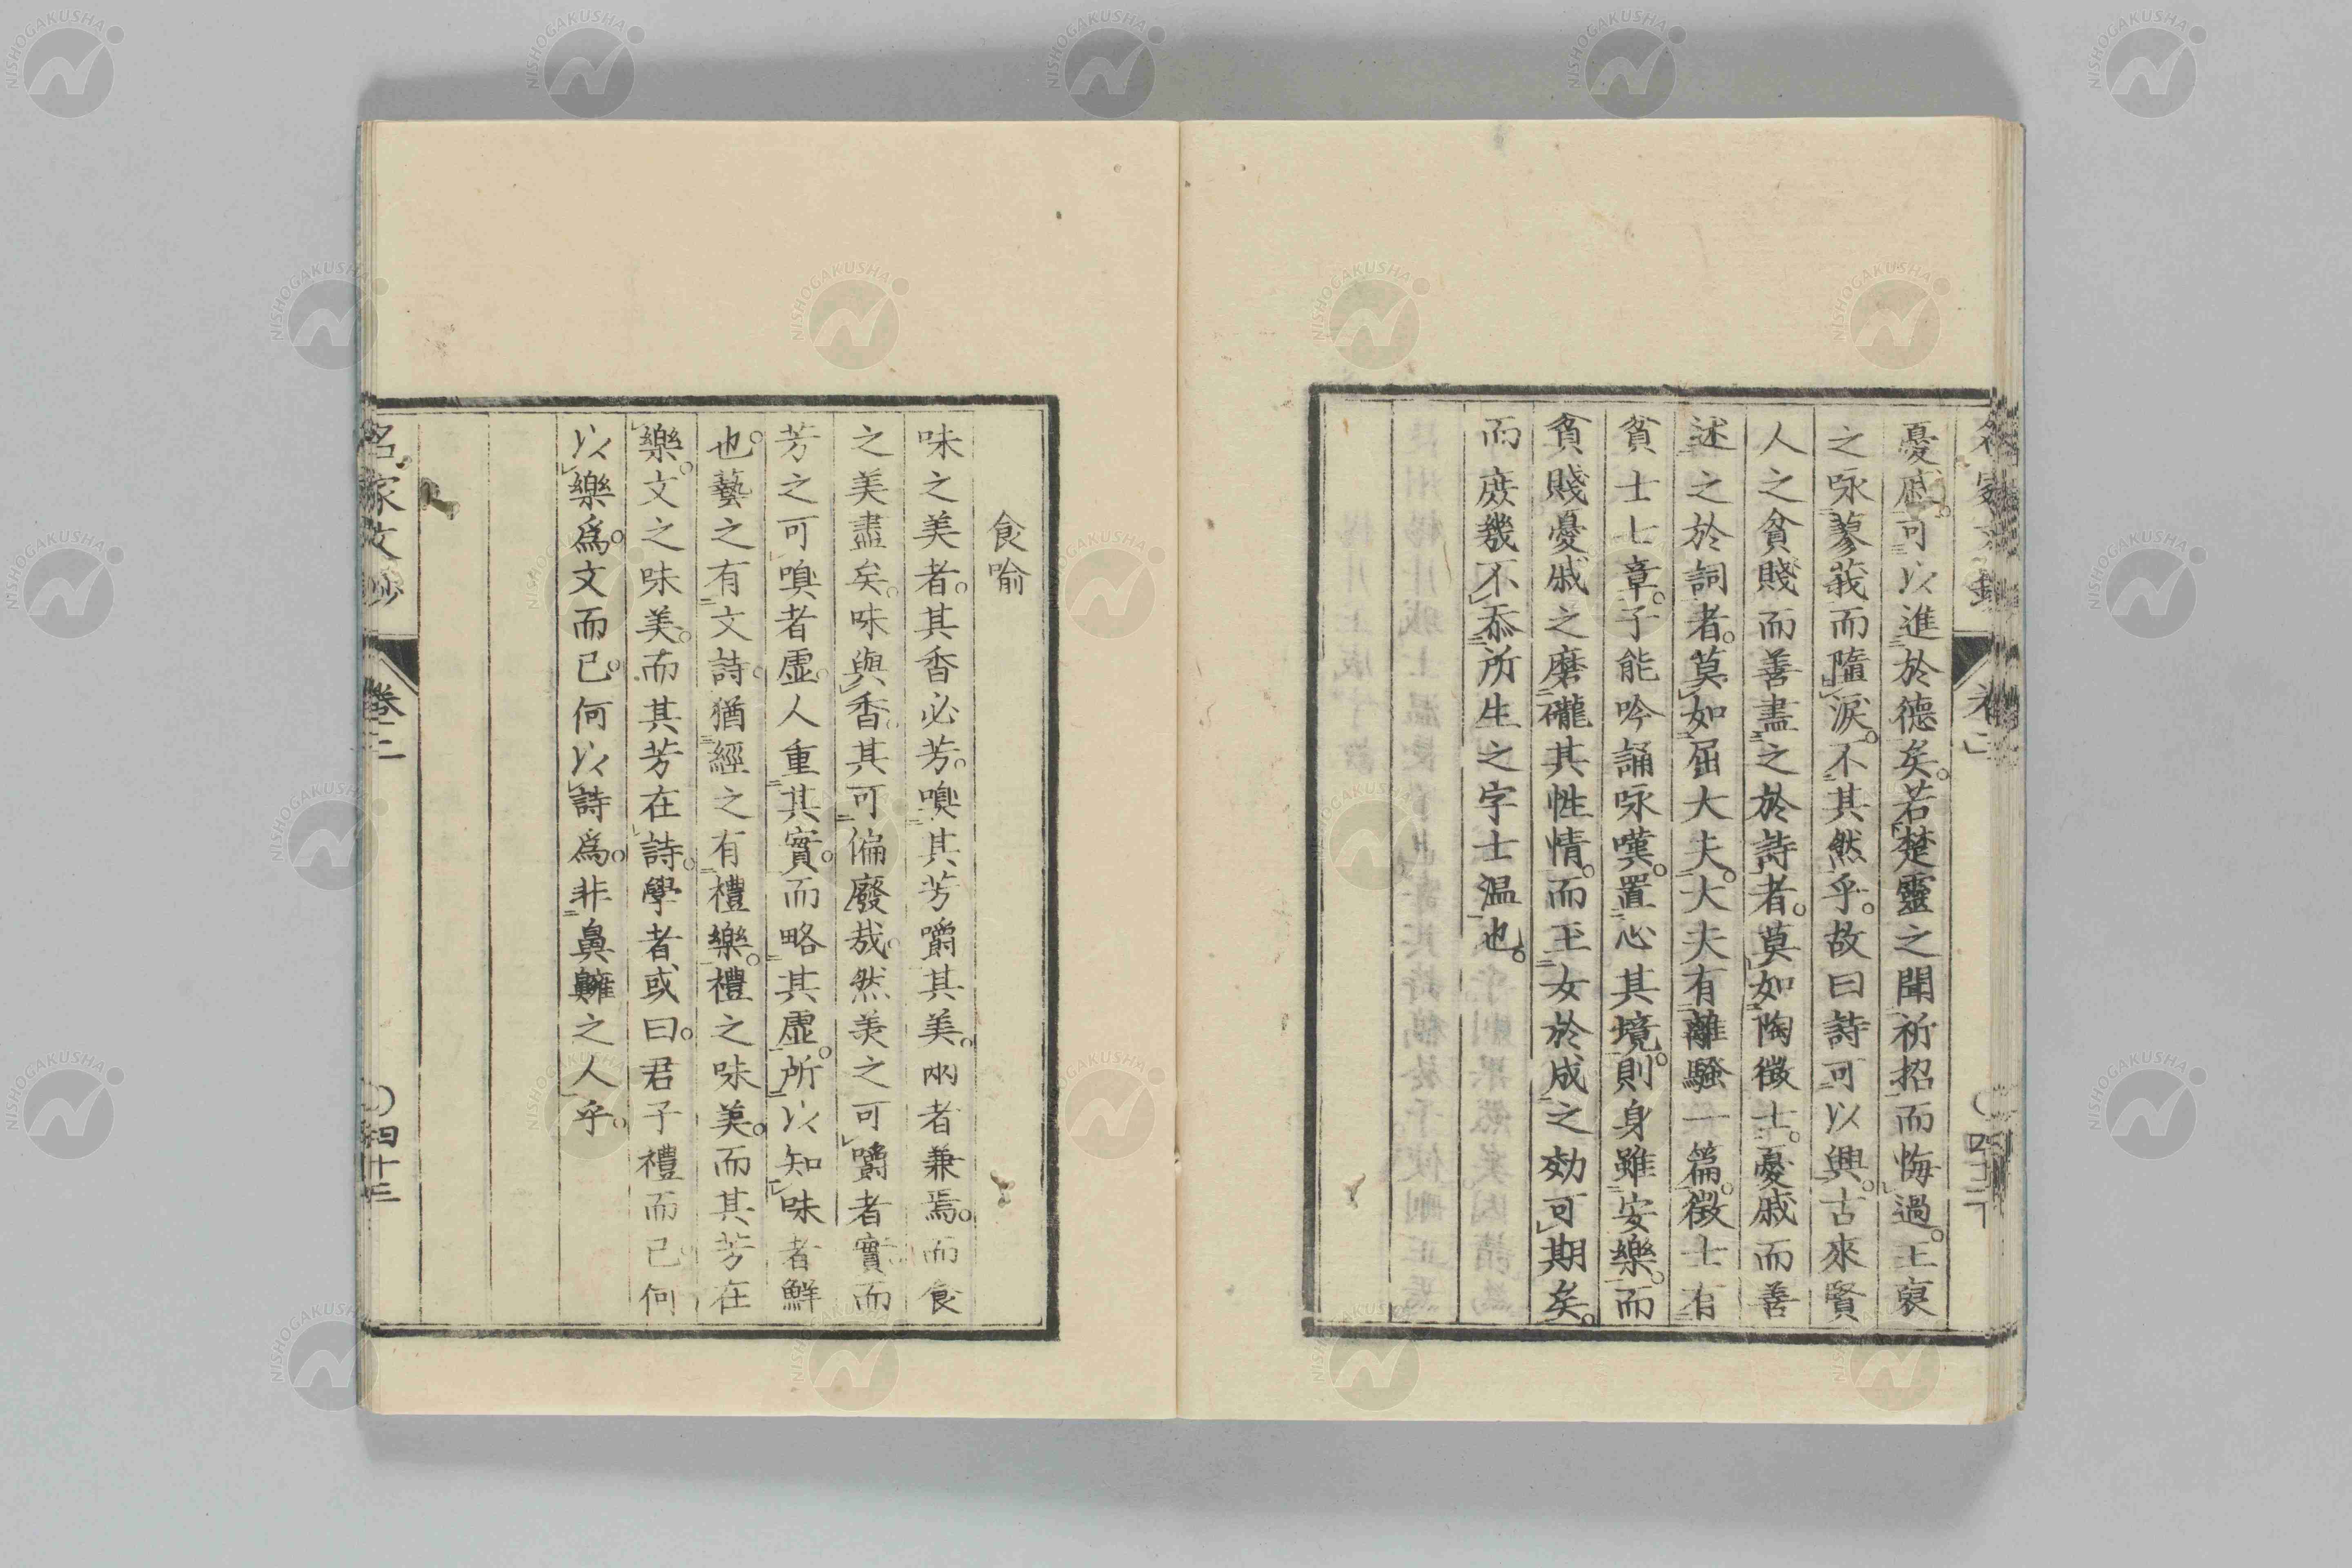 憂戚。可以進於德矣。若楚靈之聞祈招而悔過。王裒
之咏蓼莪而墮淚。不其然乎。故曰詩可以興。古來賢
人之貧賤而善盡之於詩者。莫如陶徵士。憂戚而善
述之於詞者。莫如屈大夫。大夫有離騷一篇。徵士有
貧士七章。子能吟誦咏嘆。置心其境。則身雖安樂。而
貧賤憂戚之磨礲其性情。而玉女於成之効可期矣。
而庶幾不忝所生之字士温也。
食喻
味之美者。其香必芳。嗅其芳嚼其美。兩者兼焉。而食
之美盡矣。味與香。其可偏廢哉。然美之可嚼者實而
芳之可嗅者虛。人重其實。而略其虛。所以知味者鮮
也。藝之有文詩。猶經之有禮樂。禮之味美。而其芳在
樂。文之味美。而其芳在詩。學者或曰。君子禮而已。何
以樂爲。文而已。何以詩爲。非鼻齆之人乎。
名家文鈔
卷二
〇四十三
NISHOGAKUSHA